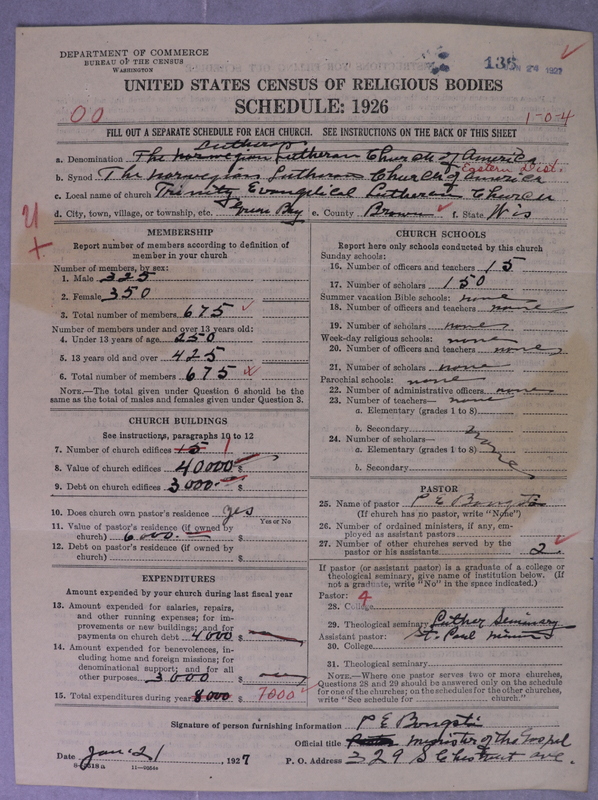 DEPARTMENT OF COMMERCE
BUREAU OF THE CENSUS
WASHINGTON
136 JAN 24 1927
UNITED STATES CENSUS OF RELIGIOUS BODIES
SCHEDULE: 1926
00
1-0-4
FILL OUT A SEPARATE SCHEDULE FOR EACH CHURCH. SEE INSTRUCTIONS ON THE BACK OF THIS SHEET
Lutheran
a. Denomination The Norwegian Lutheran Church of America
Eastern Dist.
b. Synod The Norwegian Lutheran Church of America
c. Local name of church Trinity Evangelical Lutheran Church
d. City, town, village, or township, etc. Green Bay e. County Brown f. State Wis
MEMBERSHIP
Report number of members according to definition of member in your church
Number of members, by sex:
1. Male 325
2. Female 350
3. Total number of members 675
Number of members under and over 13 years old:
4. Under 13 years of age 250
5. 13 years old and over 425
6. Total number of members 675
NOTE.—The total given under Question 6 should be the same as the total of males and females given under Question 3.
CHURCH BUILDINGS
See instructions, paragraphs 10 to 12
7. Number of church edifices 15 1
8. Value of church edifices 40000 $
9. Debt on church edifices 3000 $
10. Does church own pastor's residence yes
Yes or No
11. Value of pastor's residence (if owned by church) 6000. $
12. Debt on pastor's residence (if owned by church) $
EXPENDITURES
Amount expended by your church during last fiscal year
13. Amount expended for salaries, repairs, and other running expenses; for improvements or new building; and for payments on church debt 4000 $
14. Amount expended for benevolences, including home and foreign missions; for denominational support; and for all other purposes 3000 $
15. Total expenditures during year 8000 7000
CHURCH SCHOOLS
Report here only schools conducted by this church
Sunday schools:
16. Number of officers and teachers 15
17. Number of scholars 150
Summer vacation Bible schools: none
18. Number of officers and teachers none
19. Number of scholars none
Week-day religious schools: none
20. Number of officers and teachers none
21. Number of scholars none
Parochial schools: none
22. Number of administrative officers none
23. Number of teachers— none
a. Elementary (grades 1 to 8)
b. Secondary
24. Number of scholars— none
a. Elementary (grades 1 to 8)
b. Secondary
PASTOR
25. Name of pastor P E Bongsto
(If church has no pastor, write "None")
26. Number of ordained ministers, if any, employed as assistant pastors
27. Number of other churches served by the pastor or his assistants 2
If pastor (or assistant pastor) is a graduate of a college or theological seminary, give name of institution below. (If not a graduate, write "No" in the space indicated.)
Pastor: 4
28. College
29. Theological seminary Luther Seminary
Assistant pastor: St. Paul Minn
30. College
31. Theological seminary
NOTE.—Where one pastor serves two or more churches, Questions 28 and 29 should be answered only on the schedule for one of the churches; on the schedules for the other churches, write "See schedule for church."
Signature of person furnishing information P E Bongsto
Official title Minister of the Gospel
Date Jan. 21, 1927 P. O. Address 329 S Chestnut ave.
8-5518a 11-9864